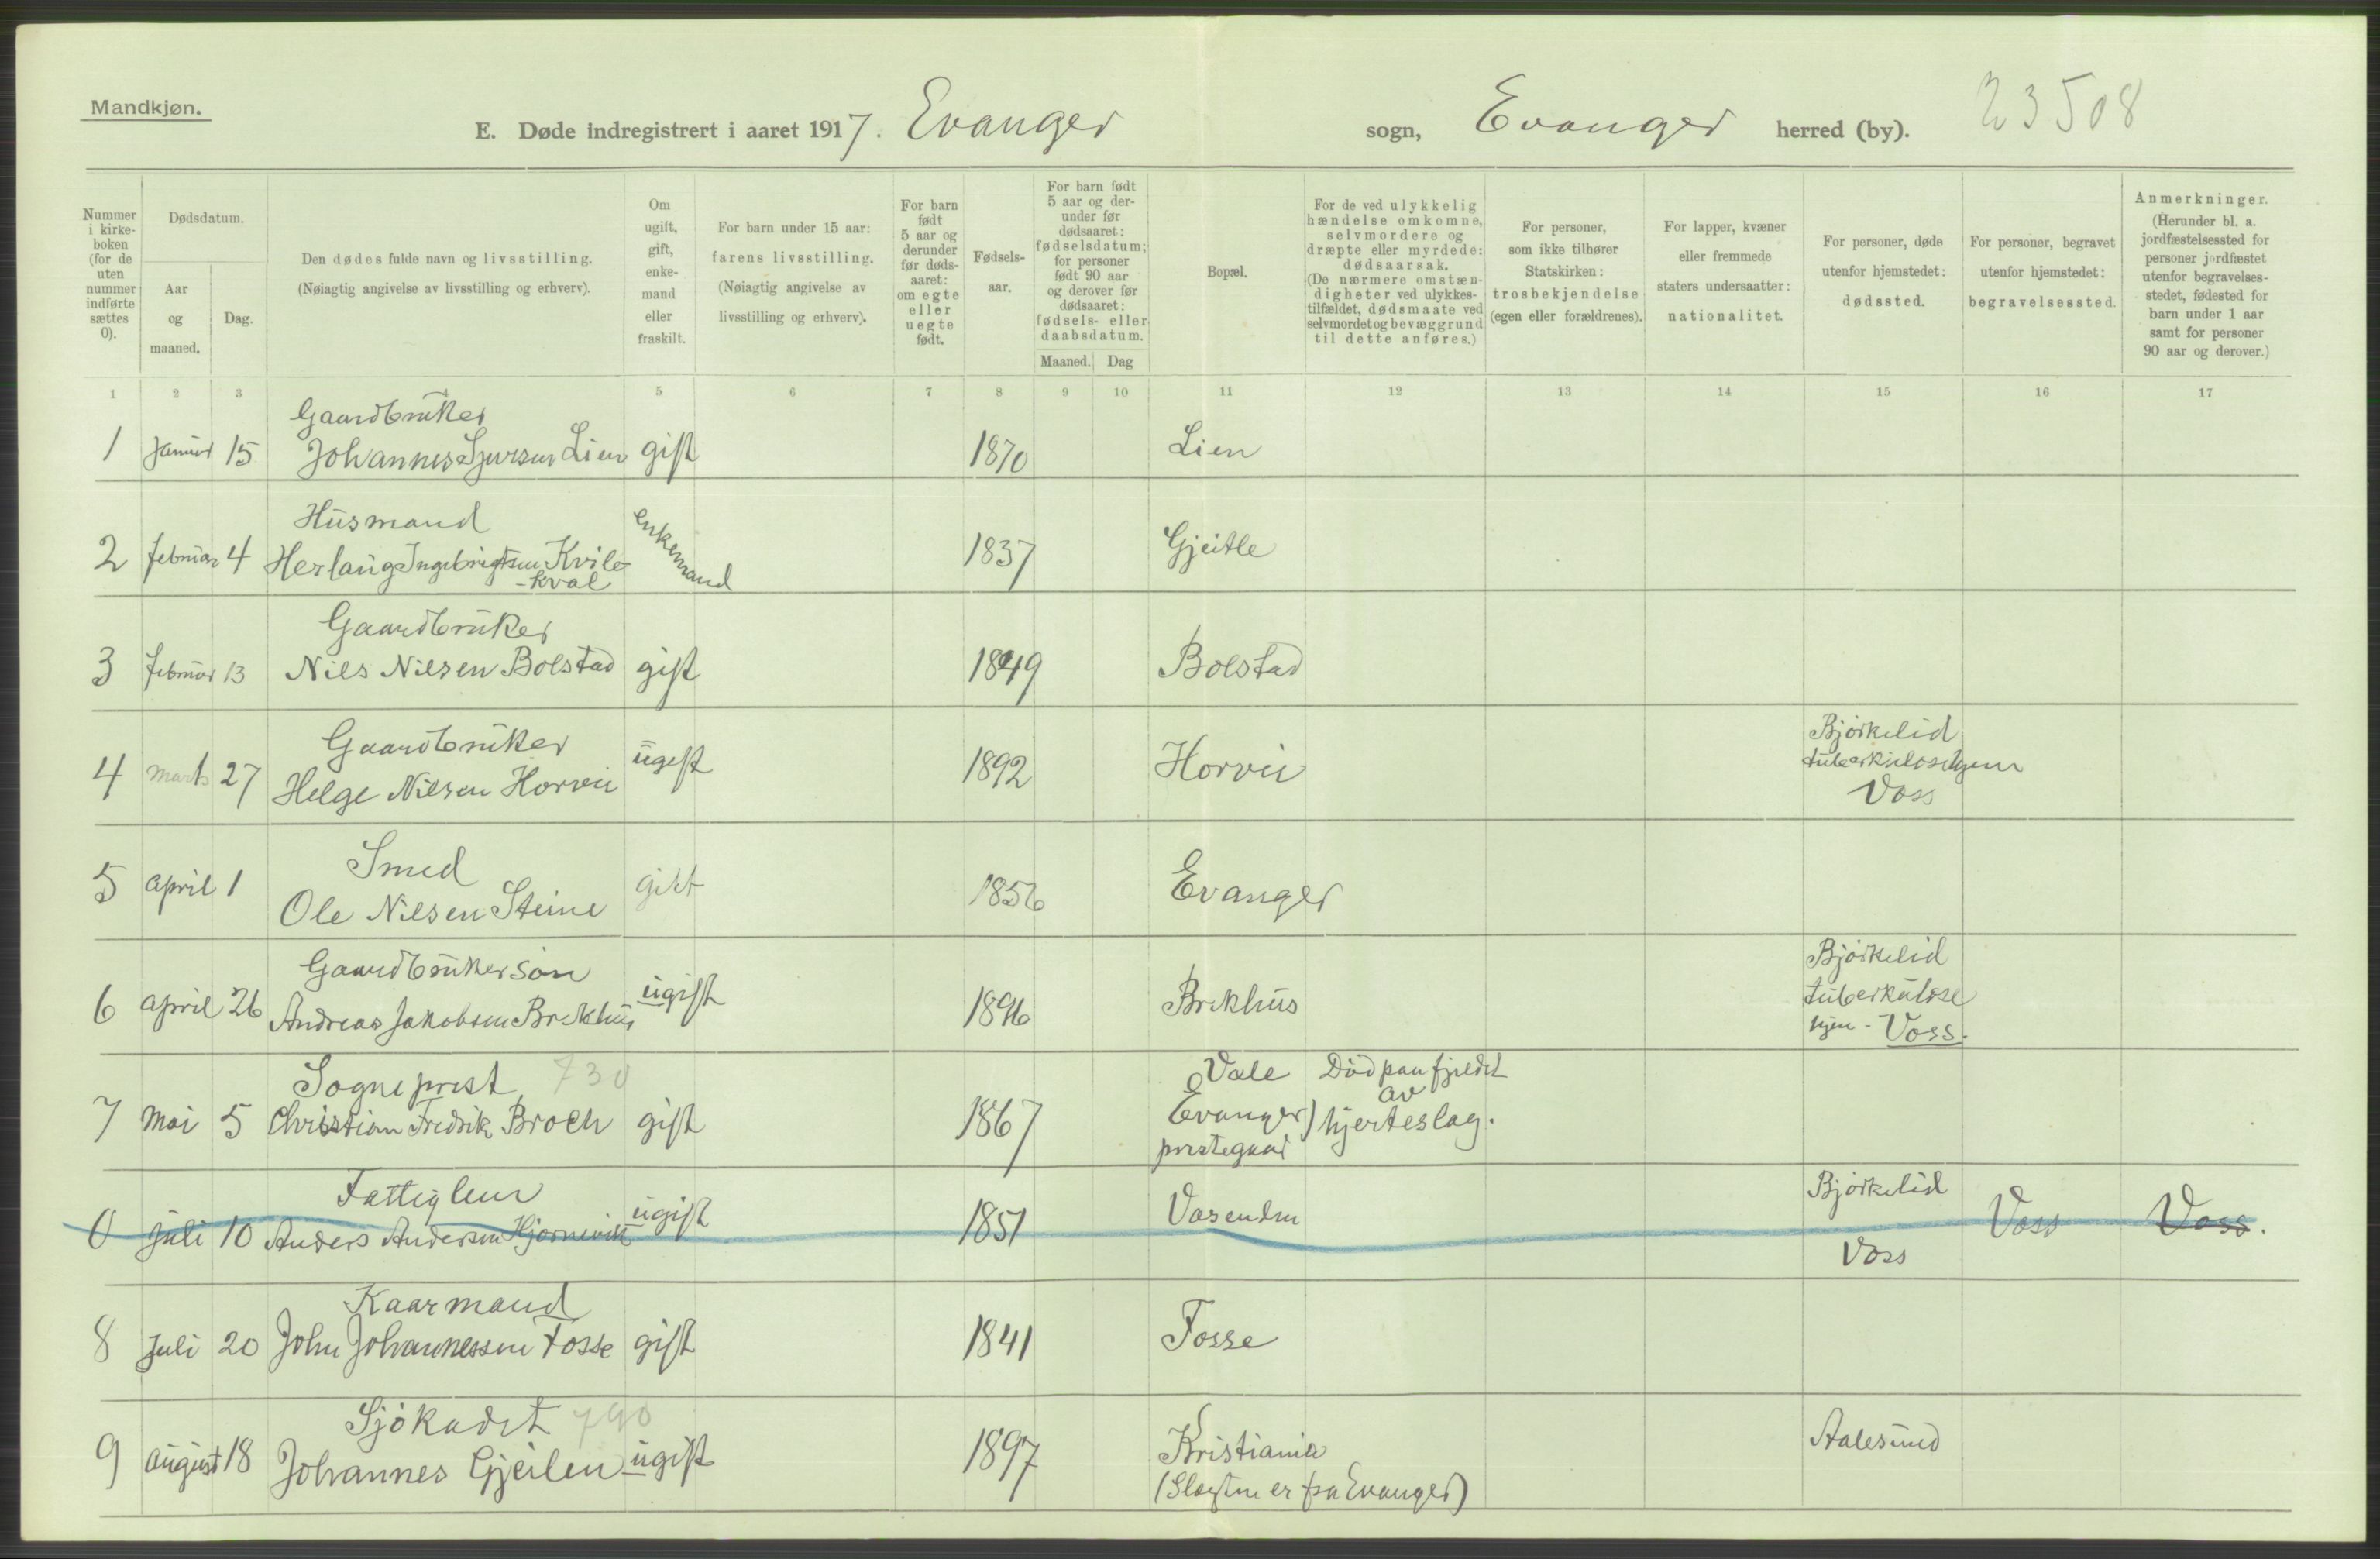 Mandkjøn.
E. Døde indregistrert i aaret 1917. Evanger sogn, Evanger herred (by). 23508
Nummer i kirke-boken (for de uten nummer indførte sættes 0).
Dødsdatum.
Aar og maaned.
Dag.
Den dødes fulde navn og livsstilling.
(Nøiagtig angivelse av livsstilling og erhverv).
Om ugift, gift, enke-mand eller fraskilt.
For barn under 15 aar: farens livsstilling.
(Nøiagtig angivelse av livsstilling og erhverv).
For barn født 5 aar og derunder før døds-aaret: om egte eller uegte født.
Fødsels-aar.
For barn født 5 aar og der-under før dødsaaret: fødselsdatum; for personer født 90 aar og derover før dødsaaret: fødsels- eller daabsdatum.
Maaned. Dag
Bopæl.
For de ved ulykkelig hændelse omkomne, selvmordere og dræpte eller myrdede: dødsaarsak.
(De nærmere omstæn-digheter ved ulykkes-tilfældet, dødsmaate ved selvmordet og bevæggrund til dette anføres.)
For personer, som ikke tilhører Statskirken: trosbekjendelse (egen eller forældrenes).
For lapper, kvæner eller fremmede staters undersaatter: nationalitet.
For personer, døde utenfor hjemstedet: dødssted.
For personer, begravet utenfor hjemstedet: begravelsessted.
Anmerkninger.
(Herunder bl. a. jordfæstelsessted for personer jordfæstet utenfor begravelses-stedet, fødested for barn under 1 aar samt for personer 90 aar og derover.)
1 2 3 5 6 7 8 9 10 11 12 13 14 15 16 17
Gaardbruker
1 Januar 15 Johannes Sjursen Lien gift 1870 Lien
Husmand
2 februar 4 Herlaug Ingebrigtsen Kvile- enkemand 1837 Gjeitle
-kval
Gaardbruker
3 februar 13 Nils Nilsen Bolstad gift 1849 Bolstad
Gaardbruker Bjørkelid
4 marts 27 Helge Nilsen Horvei ugift 1892 Horvei tuberkulosehjem
Voss
Smed
5 april 1 Ole Nilsen Steine gift 1856 Evanger
Gaardbrukersøn Bjørkelid
6 april 26 Andreas Jakobsen Brekhus ugift 1896 Brekhus tuberkulose
hjem - Voss.
Sogneprest 730 Vale Død paa fjeldet
av
7 Mai 5 Christian Fredrik Broch gift 1867 Evanger) hjerteslag.
prestegaar
Fattiglem Bjørkelid
0 juli 10 Anders Andersen ugift 1851 Vasenden Voss Voss.
Voss
Kaarmand
8 Juli 20 John Johannessen Fosse gift 1841 Fosse
Sjøkadet 790
9 august 18 Johannes Gjeilen ugift 1897 Kristiania Aalesund
(Slegten er fra Evanger)